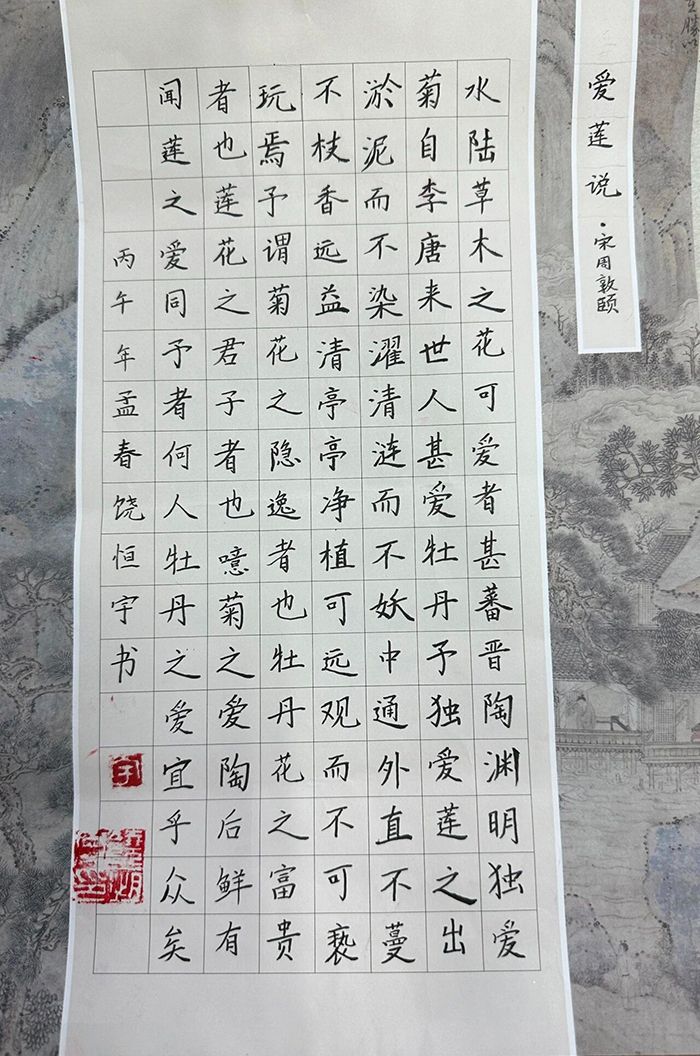 爱莲说·宋周敦颐
水陆草木之花可爱者甚蕃晋陶渊明独爱
菊自李唐来世人甚爱牡丹予独爱莲之出
淤泥而不染濯清涟而不妖中通外直不蔓
不枝香远益清亭亭净植可远观而不可亵
玩焉予谓菊花之隐逸者也牡丹花之富贵
者也莲花之君子者也噫菊之爱陶后鲜有
闻莲之爱同予者何人牡丹之爱宜乎众矣
丙午年孟春饶恒宇书
宇